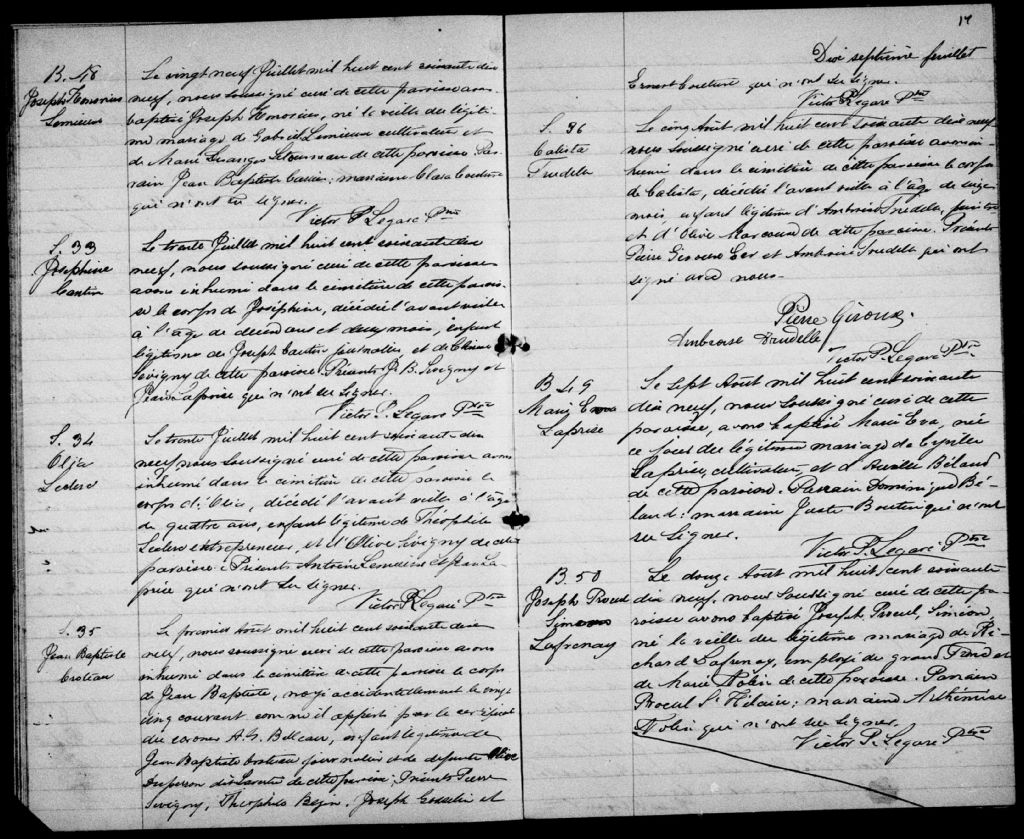 B. 48
Joseph Honorius
Lemieux
Le vingt neuf Juillet mil huit cent soixante dix
neuf, nous soussigné curé de cette paroisse avons
baptisé Joseph Honorius, né la veille du légiti-
me mariage de Gabriel Lemieux cultivateur et
de Marie Letourneau de cette paroisse. Par-
rain Jean Baptiste marraine Clara Couture
qui n'ont su signer.
Victor P. Legaré Ptre
S. 33
Josephine
Cantin
Le trente Juillet mil huit cent soixante dix
neuf, nous soussigné curé de cette paroisse
avons inhumé dans le cimetière de cette parois-
se le corps de Joséphine, décédée l'avant veille
à l'âge de deux ans et deux mois, enfant
légitime de Joseph Cantin journalier, et de
Sevigny de cette paroisse. Présents J. B. Sevigny et
qui n'ont su signer.
Victor P. Legaré Ptre
S. 34
Leclerc
Le trente Juillet mil huit cent soixante dix
neuf, nous soussigné curé de cette paroisse avons
inhumé dans le cimetière de cette paroisse le
corps d' décédé l'avant veille à l'âge
de quatre ans, enfant légitime de Théophile
Leclerc entrepreneur, et d'Olive Sevigny de cette
paroisse. Présents Antoine Lemieux et Jean La-
prise qui n'ont su signer.
Victor P. Legaré Ptre
S. 35
Jean Baptiste
Croteau
Le premier Août mil huit cent soixante dix
neuf, nous soussigné curé de cette paroisse avons
inhumé dans le cimetière de cette paroisse le corps
de Jean Baptiste, noyé accidentellement le vingt
cinq courant comme il appert par le certificat
du coroner A. G. Belleau, enfant légitime de
Jean Baptiste Croteau journalier et de défunte Olive
Duperron dit de cette paroisse. Présents Pierre
Sevigny, Théophile Bégin, Joseph Gosselin et
17
Dix septième feuillet
Ernest Couture qui n'ont su signer.
Victor P. Legaré Ptre
S. 36
Calista
Trudelle
Le cinq Août mil huit cent soixante dix neuf
nous soussigné curé de cette paroisse avons in-
humé dans le cimetière de cette paroisse le corps
de Calista, décédée l'avant veille à l'âge de
mois, enfant légitime d'Ambroise Trudelle,
et d'Olive Marcoux de cette paroisse. Présents
Pierre Giroux Ecr et Ambroise Trudelle qui ont
signé avec nous.
Pierre Giroux.
Ambroise Trudelle
Victor P. Legaré Ptre
B 49
Marie Eva
Laprise
Le sept Août mil huit cent soixante
dix neuf, nous soussigné curé de cette
paroisse, avons baptisé Marie Eva, née
ce jour du légitime mariage de Cyrille
Laprise, cultivateur et d'Aurélie Béland
de cette paroisse. Parrain Dominique Bé-
land: marraine Boutin qui n'ont
su signer.
Victor P. Legaré Ptre
B. 50
Joseph Procul
Simeon
Lafrenay
Le douze Août mil huit cent soixante
dix neuf, nous soussigné curé de cette pa-
roisse avons baptisé Joseph, Procul, Simeon
né la veille du légitime mariage de Ri-
chard Lafrenay, employé du grand Tronc et
de Marie Nolin de cette paroisse. Parrain
Procul St Hilaire; marraine Arthémise
Nolin qui n'ont su signer.
Victor P. Legaré Ptre